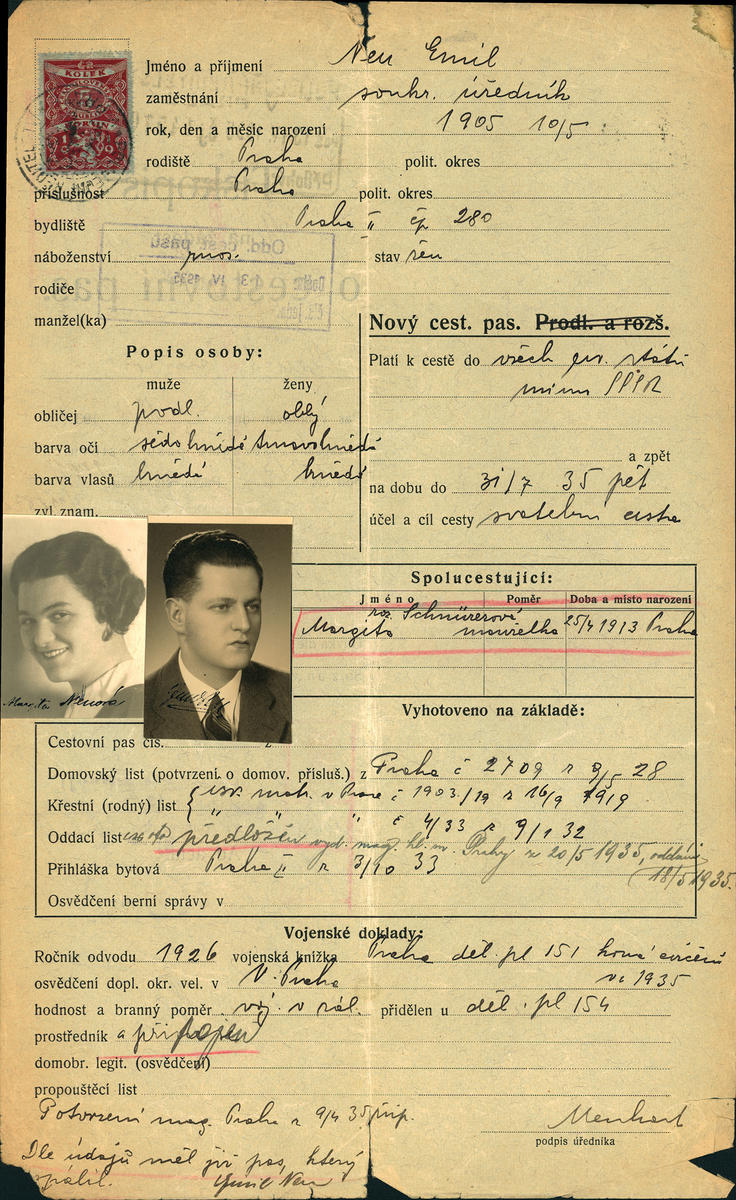 KOLEK
Jméno a příjmení Neu Emil
zaměstnání soukr. úředník
rok, den a měsíc narození 1905 10/5
rodiště Praha polit. okres
příslušnost Praha polit. okres
bydliště Praha II čp 280
náboženství stav žen
Odd. cest. pasů
13 IV 1935
rodiče
manžel(ka)
Nový cest. pas. Prodl. a rozš.
Popis osoby:
Platí k cestě do všech evr. států
mimo SSSR
muže ženy
obličej podl. oblý
barva očí šedohnědé tmavohnědé
barva vlasů hnědé hnědé
zvl. znam.
a zpět
na dobu do 31/7 35 pět
účel a cíl cesty svatební cesta
Spolucestující:
Jméno Poměr Doba a místo narození
roz. Schnürerová
Margita manželka 25/4 1913 Praha
Margita Neuová
Vyhotoveno na základě:
Cestovní pas čís. z
Domovský list (potvrzení o domov. přísluš.) z Praha č 2709 z 28
Křestní (rodný) list v Praze č 1903/19 z 16/9 1919
" " č 4/33 z 9/1 32
Oddací list předložen vyd. mag. hl. m. Prahy z 20/5 1935, oddáni
18/5 1935.
Přihláška bytová Praha II z 3/10 33
Osvědčení berní správy v
Vojenské doklady:
Ročník odvodu 1926 vojenská knížka Praha děl. pl 151 koná cvičení
v r. 1935
osvědčení dopl. okr. vel. v V. Praha
hodnost a branný poměr voj. v zál. přidělen u děl. pl 154
prostředník a připojen
domobr. legit. (osvědčení)
propouštěcí list
Potvrzení mag. Praha z 9/4 35
podpis úředníka
Dle údajů měl již pas, který
spálil. Emil Neu